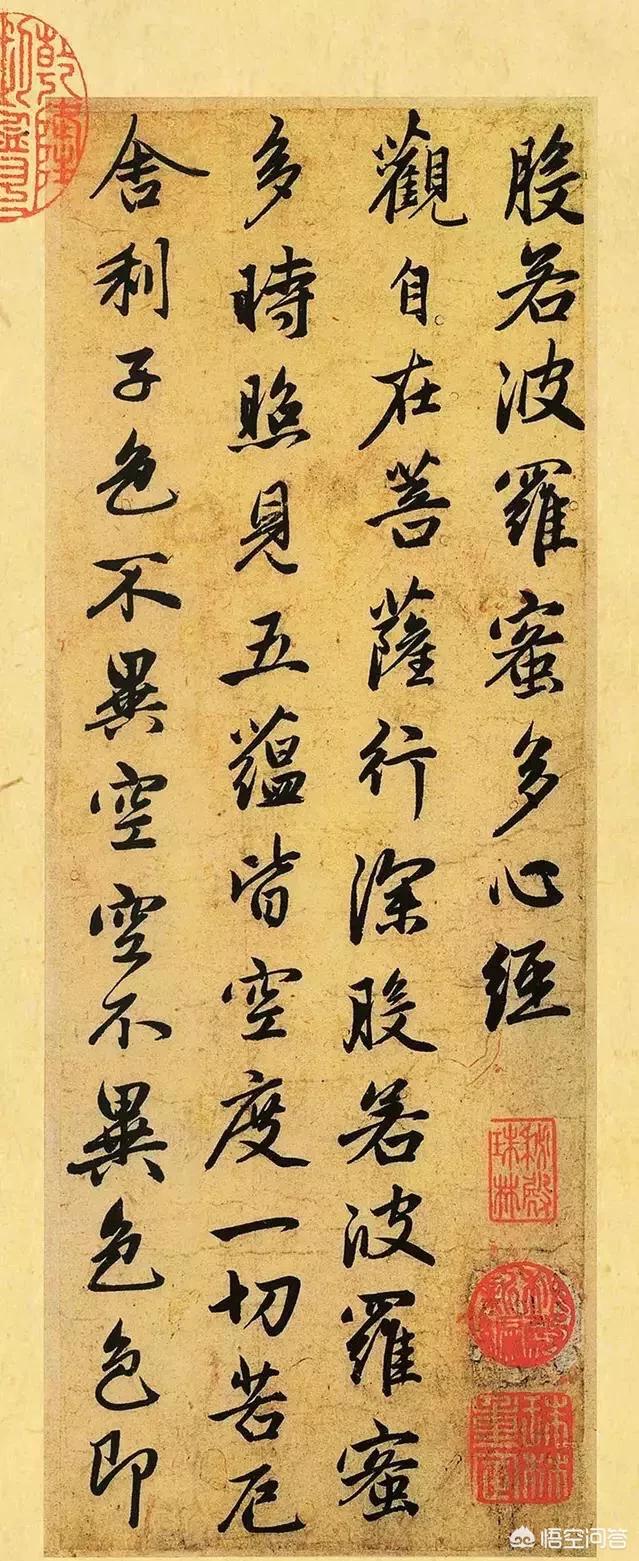 般若波羅蜜多心經
觀自在菩薩行深般若波羅蜜
多時照見五蘊皆空度一切苦厄
舍利子色不異空空不異色色即
秘殿珠林
秘殿新編
珠林重定
乾隆
悟空问答